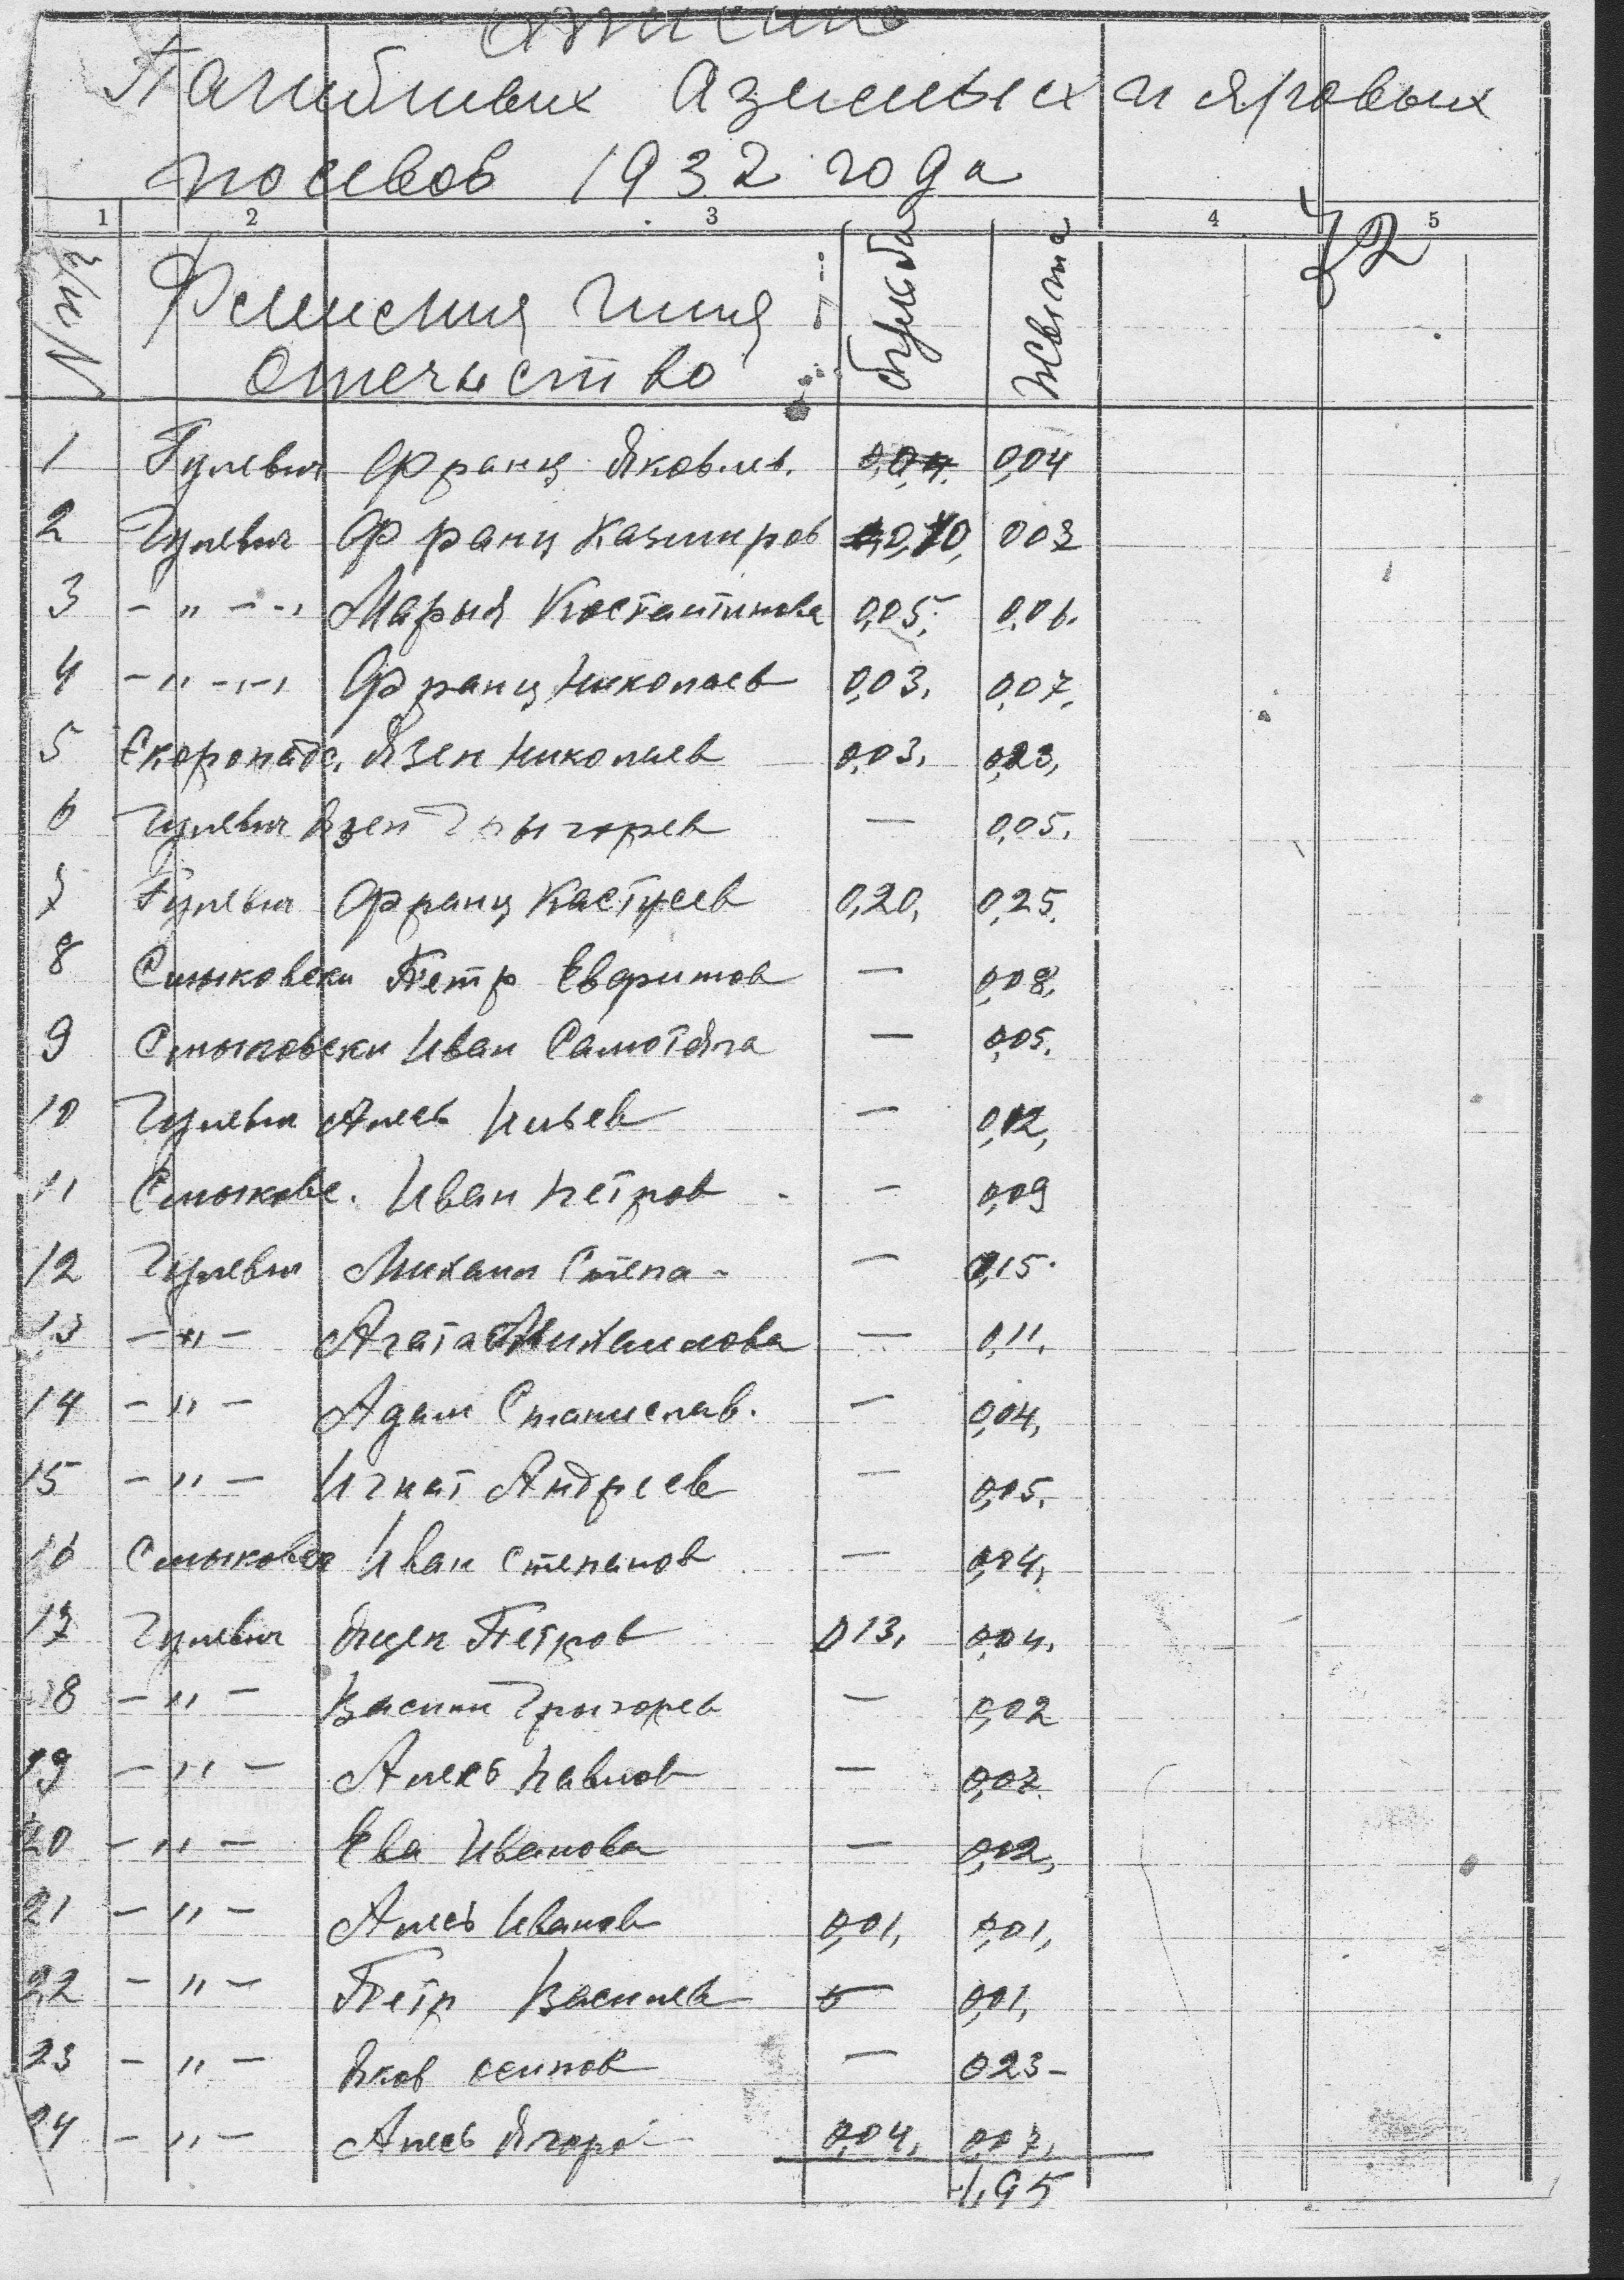 Пагибшых Азимых и яровых
посевов 1932 года
1 2 3 4 5
72
N п/п Фамилия Имя Отечыство бульба жвыта
1 Гулевич Франц Яковлев. 0,04. 0,04
2 Гулевич Франц Казимиров 0,10, 003
3 - " - - " Марыя Костантинова 0,05. 0,06.
4 - " - - " Франц Николаев 0,03. 0,07.
5 Скоропадс. Язеп Николаев 0,03, 0,23,
6 Гулевич Язеп Грыгорев — 0,05.
7 Гулевич Франц Кастусев 0,20, 0,25.
8 Смыковски Петр — 0,08,
9 Смыковски Иван — 0,05.
10 Гулевич Алесь Ильев — 0,12,
11 Смыковс. Иван Петров - 0,09
12 Гулевич Михаил Степа- — 0,15.
13 - " - Агата Михаилова — 0,11.
14 - " - Адам Станислав. — 0,04,
15 - " - Игнат Андреев — 0,05.
16 Смыковск Иван Степанов — 0,04,
17 Гулевич Яцен Петров 0 13, 0,04.
18 - " - Васили Грыгорев — 0,02
19 - " - Алесь Павлов — 0,07.
20 - " - Ева Иванова — 0,02,
21 - " - Алесь Иванов 0,01, 0,01,
22 - " - Петр Василев — 0,01,
23 - " - Яков осипов — 023-
24 - " - Алесь Ягоро- 0,04, 0,07,
1,95